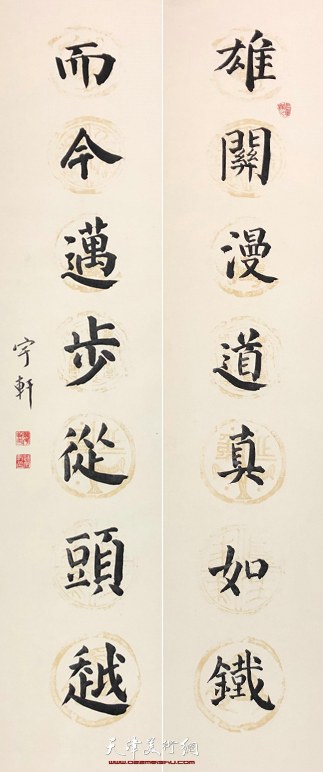 雄關漫道真如鐵
而今邁步從頭越
宇軒
天津美術網
www.022meishu.com